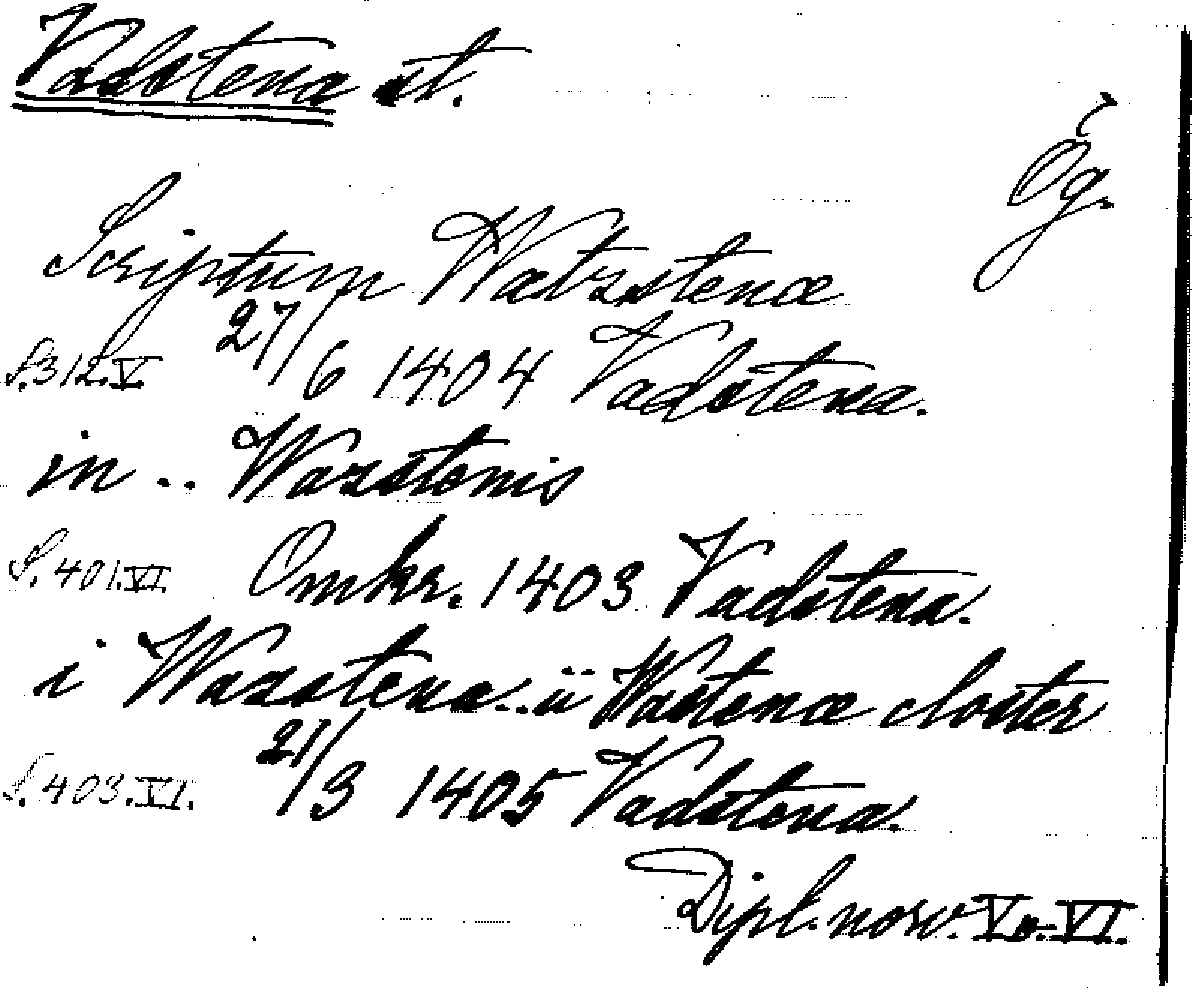 Vadstena st.
Ög.
Scriptum Watzstenæ
S. 312. V. 27/6 1404 Vadstena.
in .. Wazstenis
S. 401. VI. Omkr. 1403 Vadstena.
i Wazstena .. ii Wastenæ closter
S. 403. VI. 21/3 1405 Vadstena.
Dipl. norv. V o. VI.